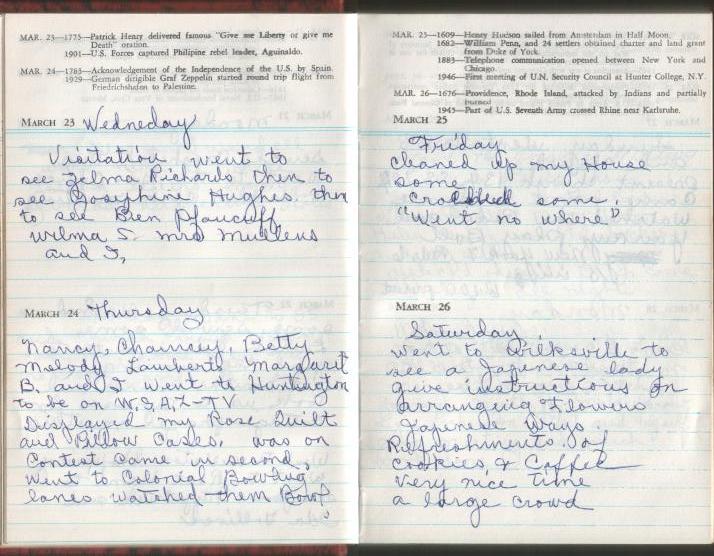 MAR. 23—1775—Patrick Henry delivered famous "Give me Liberty or give me
Death" oration.
1901—U.S. Forces captured Philipine rebel leader, Aguinaldo.
MAR. 24—1783—Acknowledgement of the Independence of the U.S. by Spain.
1929—German dirigible Graf Zeppelin started round trip flight from
Friedrichshafen to Palestine.
MARCH 23 Wedneday
Visitation went to
see Zelma Richards then to
see Josephine Hughes then
to see Ben
Wilma S. mrs Mullens
and I,
MARCH 24 Thursday
Nancy, Chancey, Betty
Melody Lamberts Margaret
B. and I went to Huntington
to be on W.S.A.Z-TV
Displayed my Rose Quilt
and Pillow Cases, was on
Contest came in second,
went to Colonial Bowling
lanes watched them Bowl
MAR. 25—1609—Henry Hudson sailed from Amsterdam in Half Moon.
1682—William Penn, and 24 settlers obtained charter and land grant
from Duke of York.
1883—Telephone communication opened between New York and
Chicago.
1946—First meeting of U.N. Security Council at Hunter College, N.Y.
MAR. 26—1676—Providence, Rhode Island, attacked by Indians and partially
burned
1945—Part of U.S. Seventh Army crossed Rhine near Karlsruhe.
MARCH 25
Friday
cleaned up my House
some
some.
"Went no where"
MARCH 26
Saturday
went to Wilksville to
see a Japenese lady
give instructions on
arranging Flowers
Japenese Ways.
Refreshments of
cookies & Coffee
very nice time
a large crowd